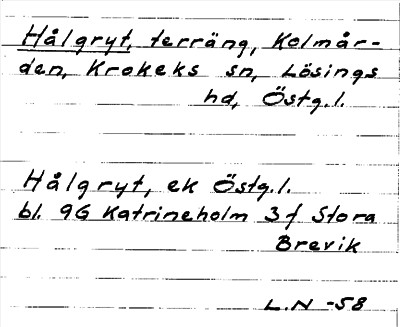 Hålgryt, terräng, Kolmår-
den, Krokeks sn, Lösings
hd, Östg.l.
Hålgryt, ek Östg.l.
bl. 9G Katrineholm 3 f Stora
Brevik
L.N -58